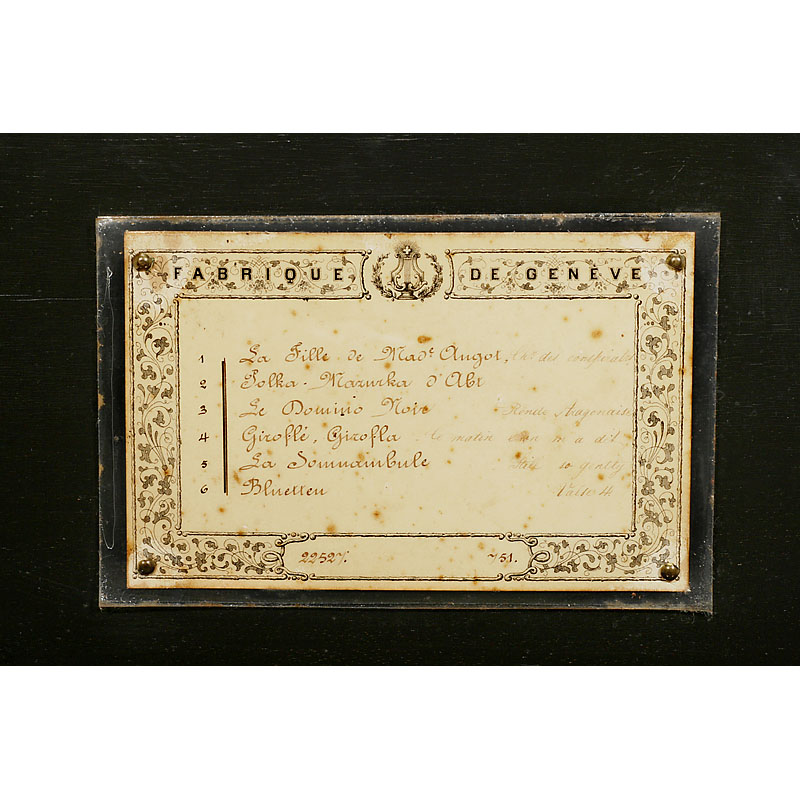 FABRIQUE DE GENÈVE
1 La Fille de Mad.e Angot, des
2 Polka-Mazurka d'Abt
3 Le Domino Noir Ronde Aragonaise
4 Giroflé, Girofla. le matin
5 La Somnambule so gently
6 Bluetten Valse
22527. 751.